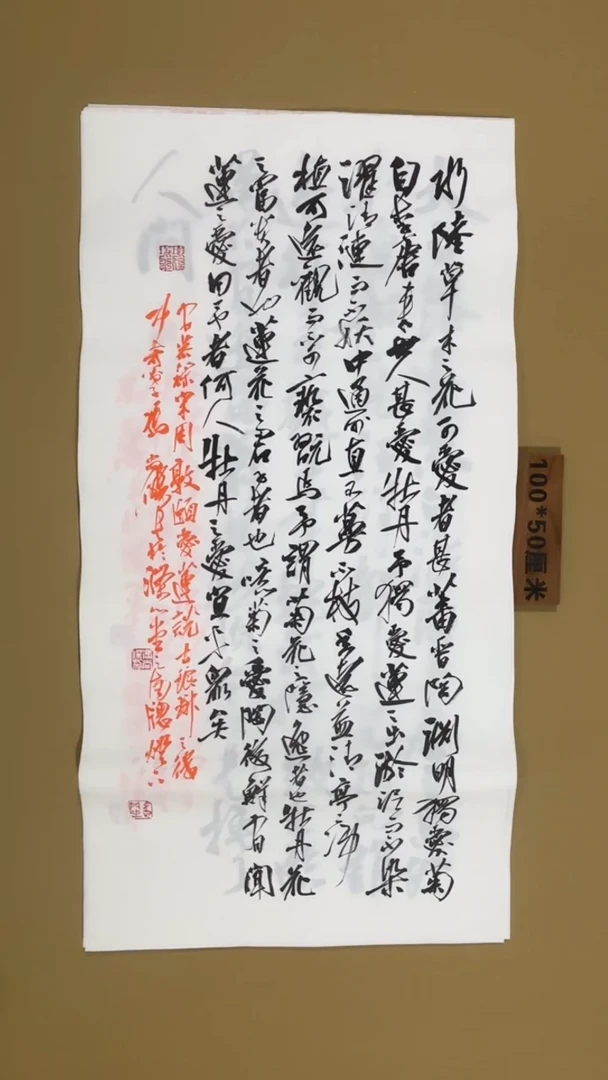 水陸草木之花可愛者甚蕃晋陶淵明獨愛菊
自李唐來世人甚愛牡丹予獨愛蓮之出淤泥而不染
濯清漣而不妖中通而直不蔓不枝香遠益清亭亭净
植可遠觀而不可褻翫焉予謂菊花之隱逸者也牡丹花
之富貴者也蓮花之君子者也噫菊之愛陶後鮮有聞
蓮之愛同予者何人牡丹之愛宜乎衆矣
宋周敦頤愛蓮説
之南窗燈下
100*50厘米